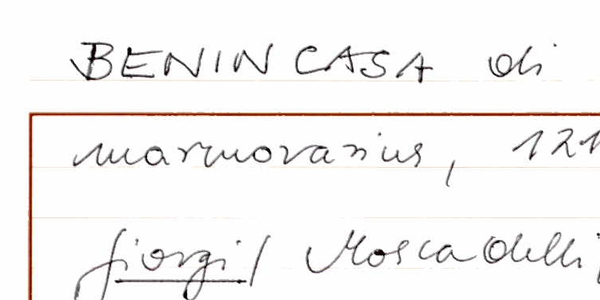 BENINCASA di
marmorarius, 121
giorgi/ Moscadelli